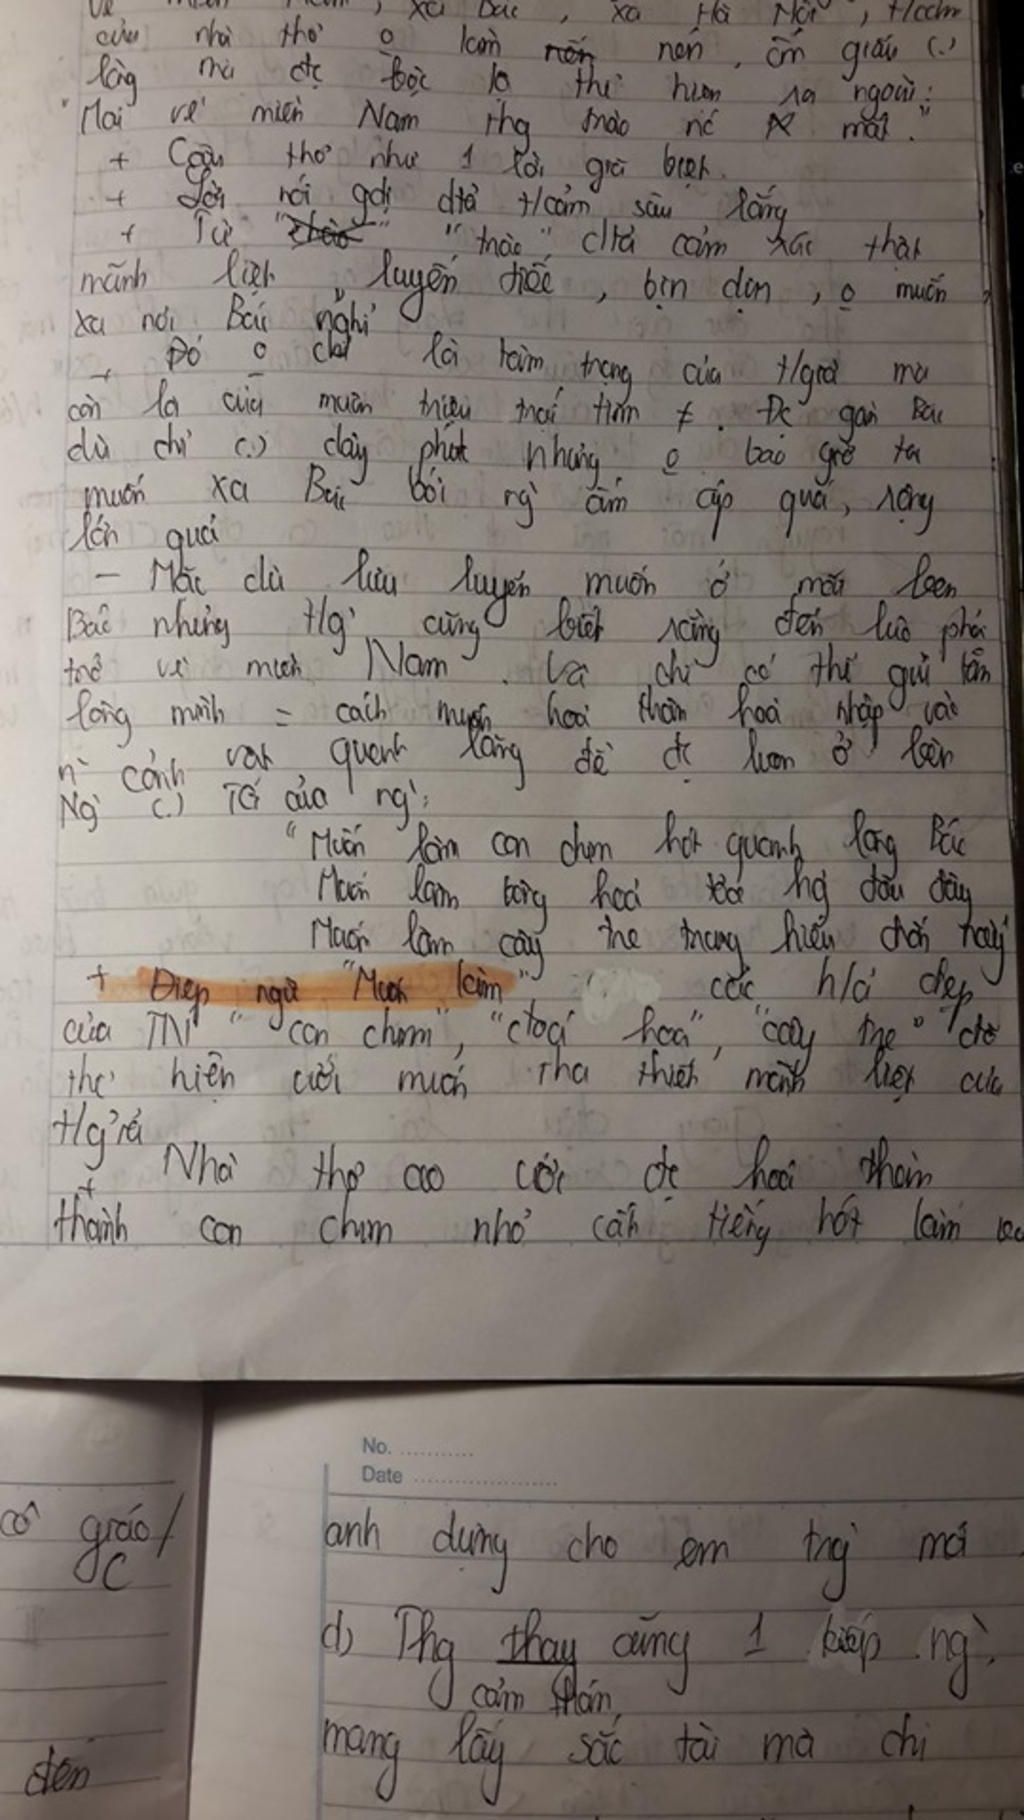 về miền Nam, xa Bác, xa Hà Nội, t/cảm
của nhà thơ o kìm nén, ẩn giấu (.)
lòng mà đc bộc lộ thể hiện ra ngoài:
"Mai về miền Nam thg trào nc mắt."
+ Câu thơ như 1 lời giã biệt
+ Lời nói gdị dtả t/cảm sâu lắng
+ Từ "trào" dtả cảm xúc thật
mãnh liệt, luyến tiếc, bịn dịn, o muốn
xa nơi Bác nghỉ
+ Đó o chỉ là tâm trạng của t/giả mà
còn là của muôn triệu trái tim ≠. Đc gần Bác
dù chỉ (.) dây phút nhưng o bao giờ ta
muốn xa Bác bởi ng` ấm áp quá, rộng
lớn quá
- Mặc dù lưu luyến muốn ở mãi bên
Bác nhưng t/g' cũng biết rằng đến lúc phải
trở về miền Nam. Và chỉ có thể gửi tấm
lòng mình = cách muốn hoá thân hoà nhập vào
n~ cảnh vật quanh lăng để đc luôn ở bên
Ng` (.) TG của ng`:
"Muốn làm con chim hót quanh lăng Bác
Muốn làm bông hoa toả hg đâu đây
Muốn làm cây tre trung hiếu chốn này"
+ Điệp ngữ "Muốn làm" các h/ả đẹp
của TN "con chim", "đoá hoa", "cây tre" để
thể hiện ước muốn tha thiết mãnh liệt của
t/g'rả
+ Nhà thơ ao ước đc hoá thân
thành con chim nhỏ cất tiếng hót làm
cô giáo/
C
đến
No.
Date
anh dựng cho em trg mới
d) Thg thay cũng 1 kiếp ng`
cảm thán
mang lấy sắc tài mà chi